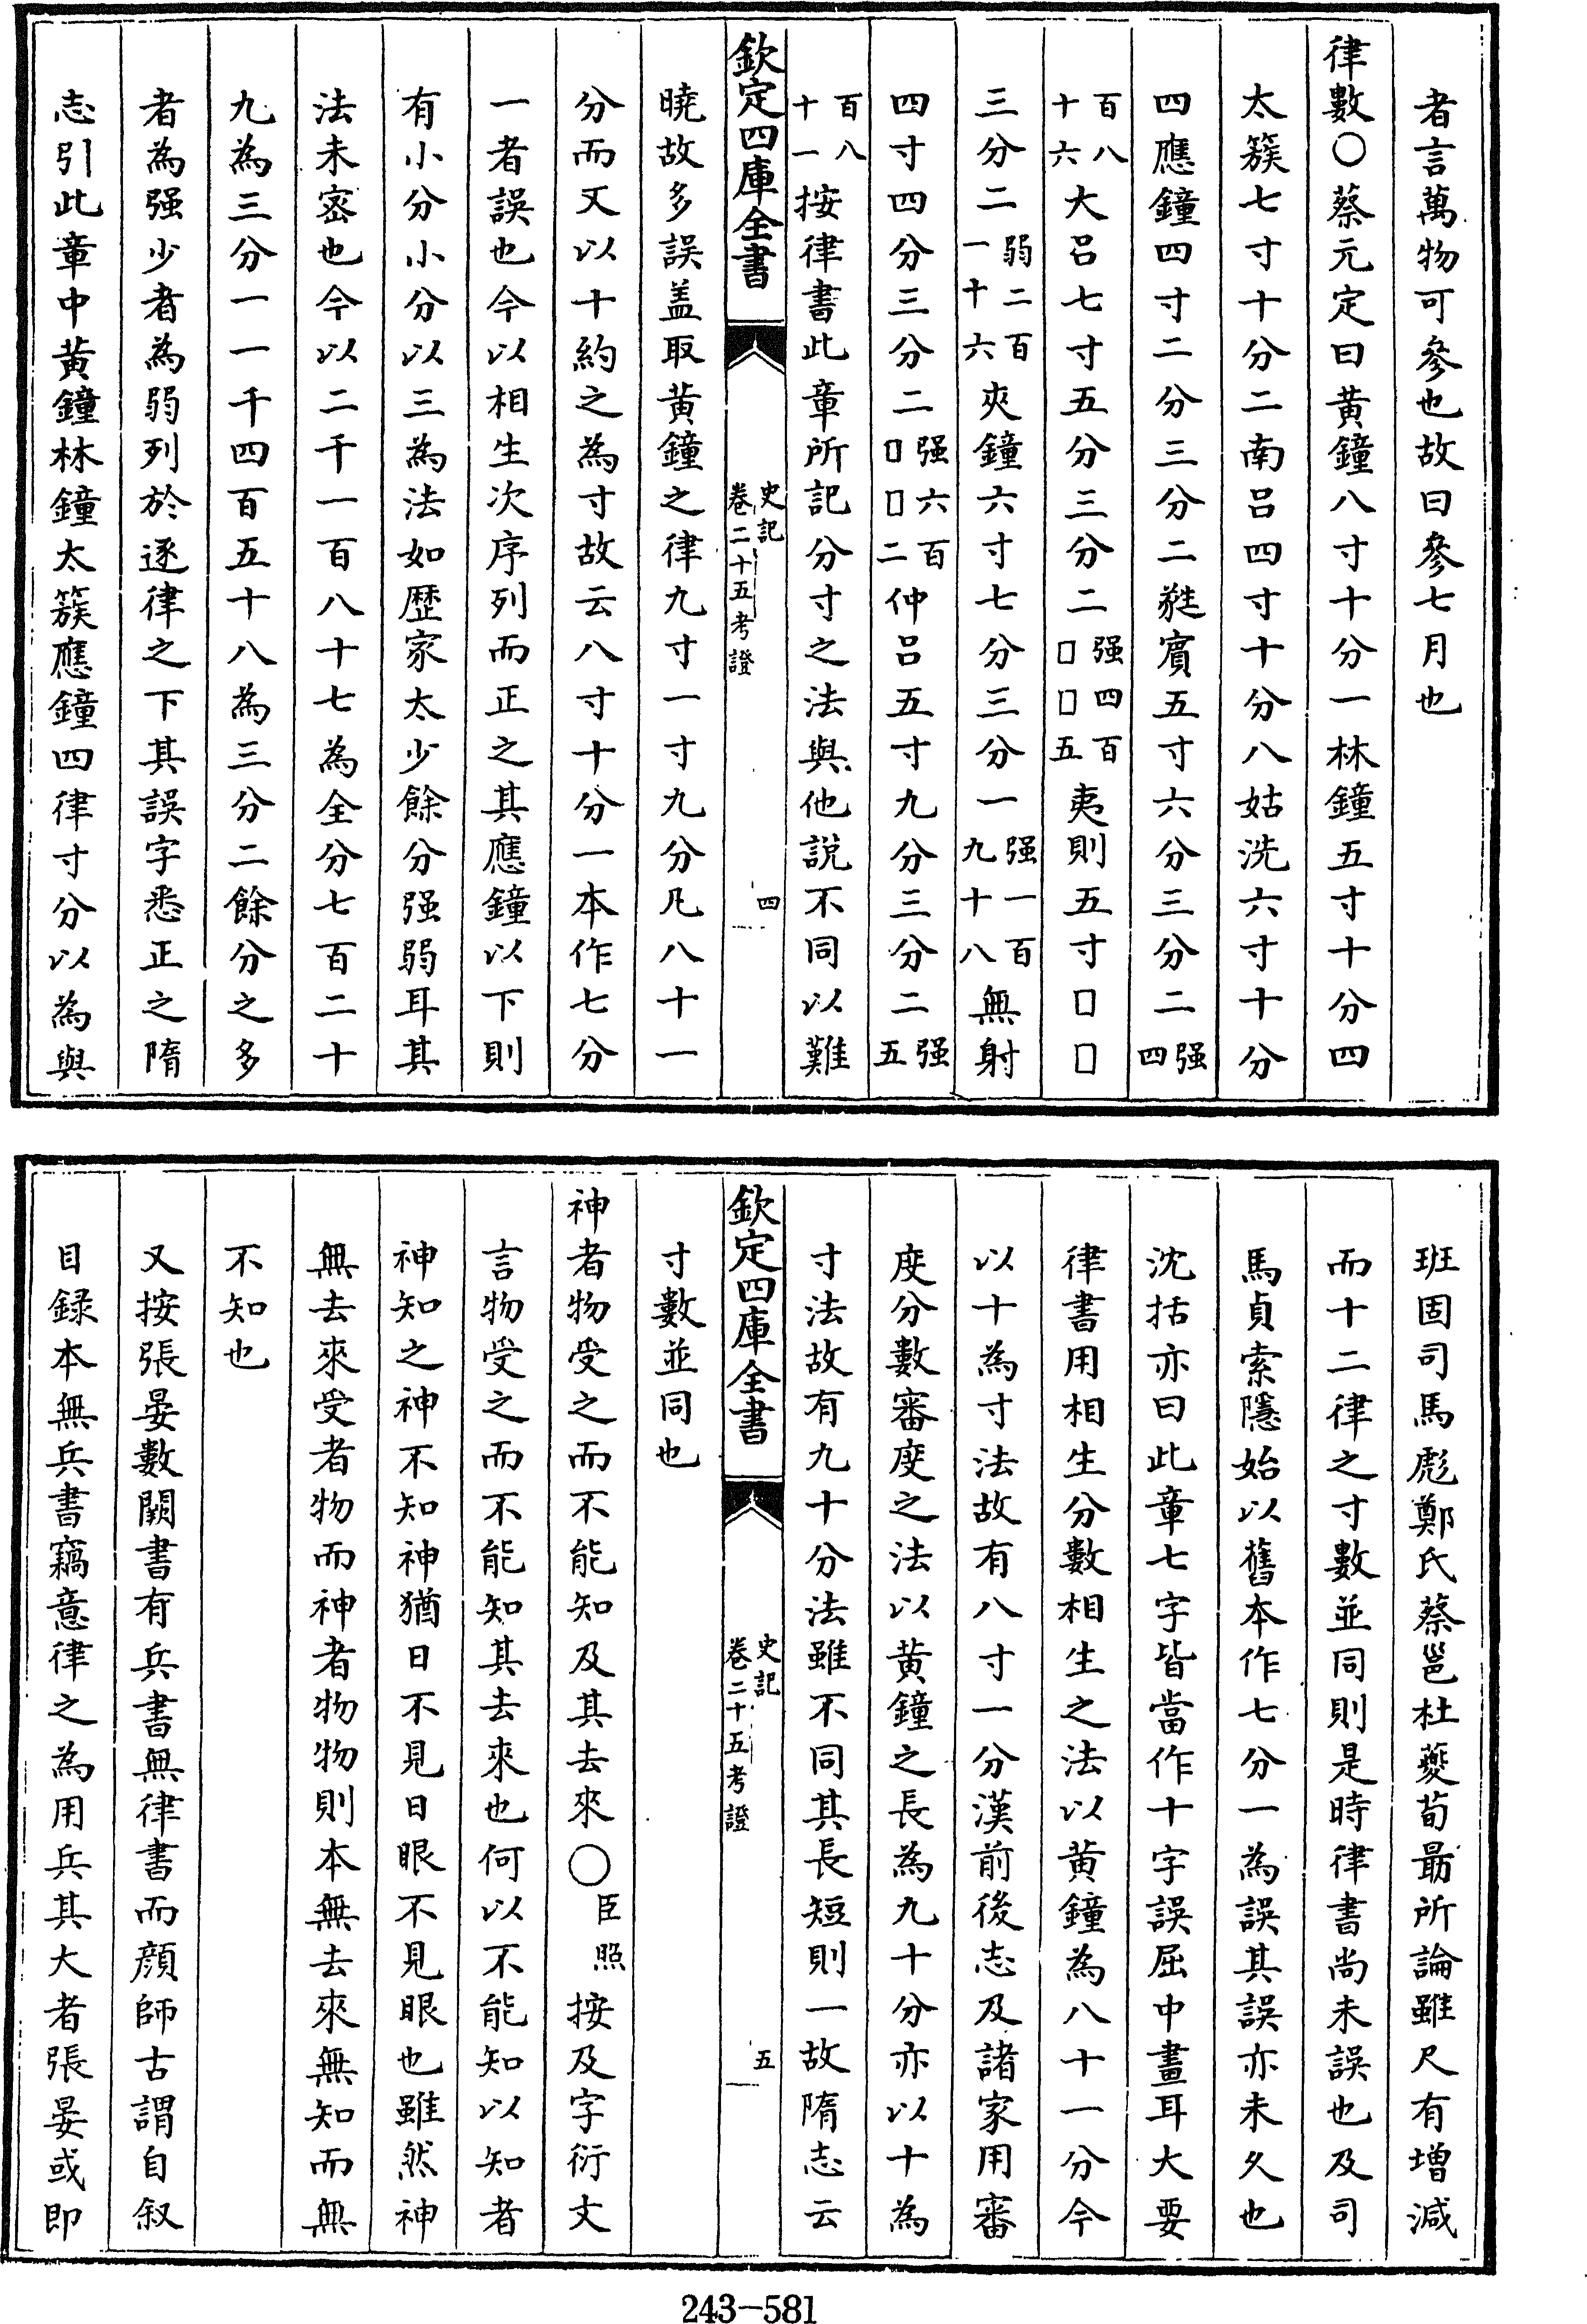 者言萬物可參也故曰參七月也
律數○蔡元定曰黄鐘八寸十分一林鐘五寸十分四
太簇七寸十分二南呂四寸十分八姑洗六寸十分
四應鐘四寸二分三分二蕤賓五寸六分三分二强四
百八十六大呂七寸五分三分二强四百□□五夷則五寸□□
三分二弱二百一十六夾鐘六寸七分三分一强一百九十八無射
四寸四分三分二强六百□□二仲呂五寸九分三分二强五
百八十一按律書此章所記分寸之法與他說不同以難
欽定四庫全書 史記卷二十五考證 四
曉故多誤盖取黄鐘之律九寸一寸九分凡八十一
分而又以十約之為寸故云八寸十分一本作七分
一者誤也今以相生次序列而正之其應鐘以下則
有小分小分以三為法如歴家太少餘分强弱耳其
法未宻也今以二千一百八十七為全分七百二十
九為三分一一千四百五十八為三分二餘分之多
者為强少者為弱列於逐律之下其誤字悉正之隋
志引此章中黄鐘林鐘太簇應鐘四律寸分以為與
班固司馬彪鄭氏蔡邕杜夔荀勗所論雖尺有增減
而十二律之寸數並同則是時律書尚未誤也及司
馬貞索隱始以舊本作七分一為誤其誤亦未久也
沈括亦曰此章七字皆當作十字誤屈中畫耳大要
律書用相生分數相生之法以黄鐘為八十一分今
以十為寸法故有八寸一分漢前後志及諸家用審
度分數審度之法以黄鐘之長為九十分亦以十為
寸法故有九十分法雖不同其長短則一故隋志云
欽定四庫全書 史記卷二十五考證 五
寸數並同也
神者物受之而不能知及其去來○臣照按及字衍文
言物受之而不能知其去來也何以不能知以知者
神知之神不知神猶日不見日眼不見眼也雖然神
無去來受者物而神者物物則本無去來無知而無
不知也
又按張晏數闕書有兵書無律書而顔師古謂自叙
目録本無兵書竊意律之為用兵其大者張晏或即
243-581